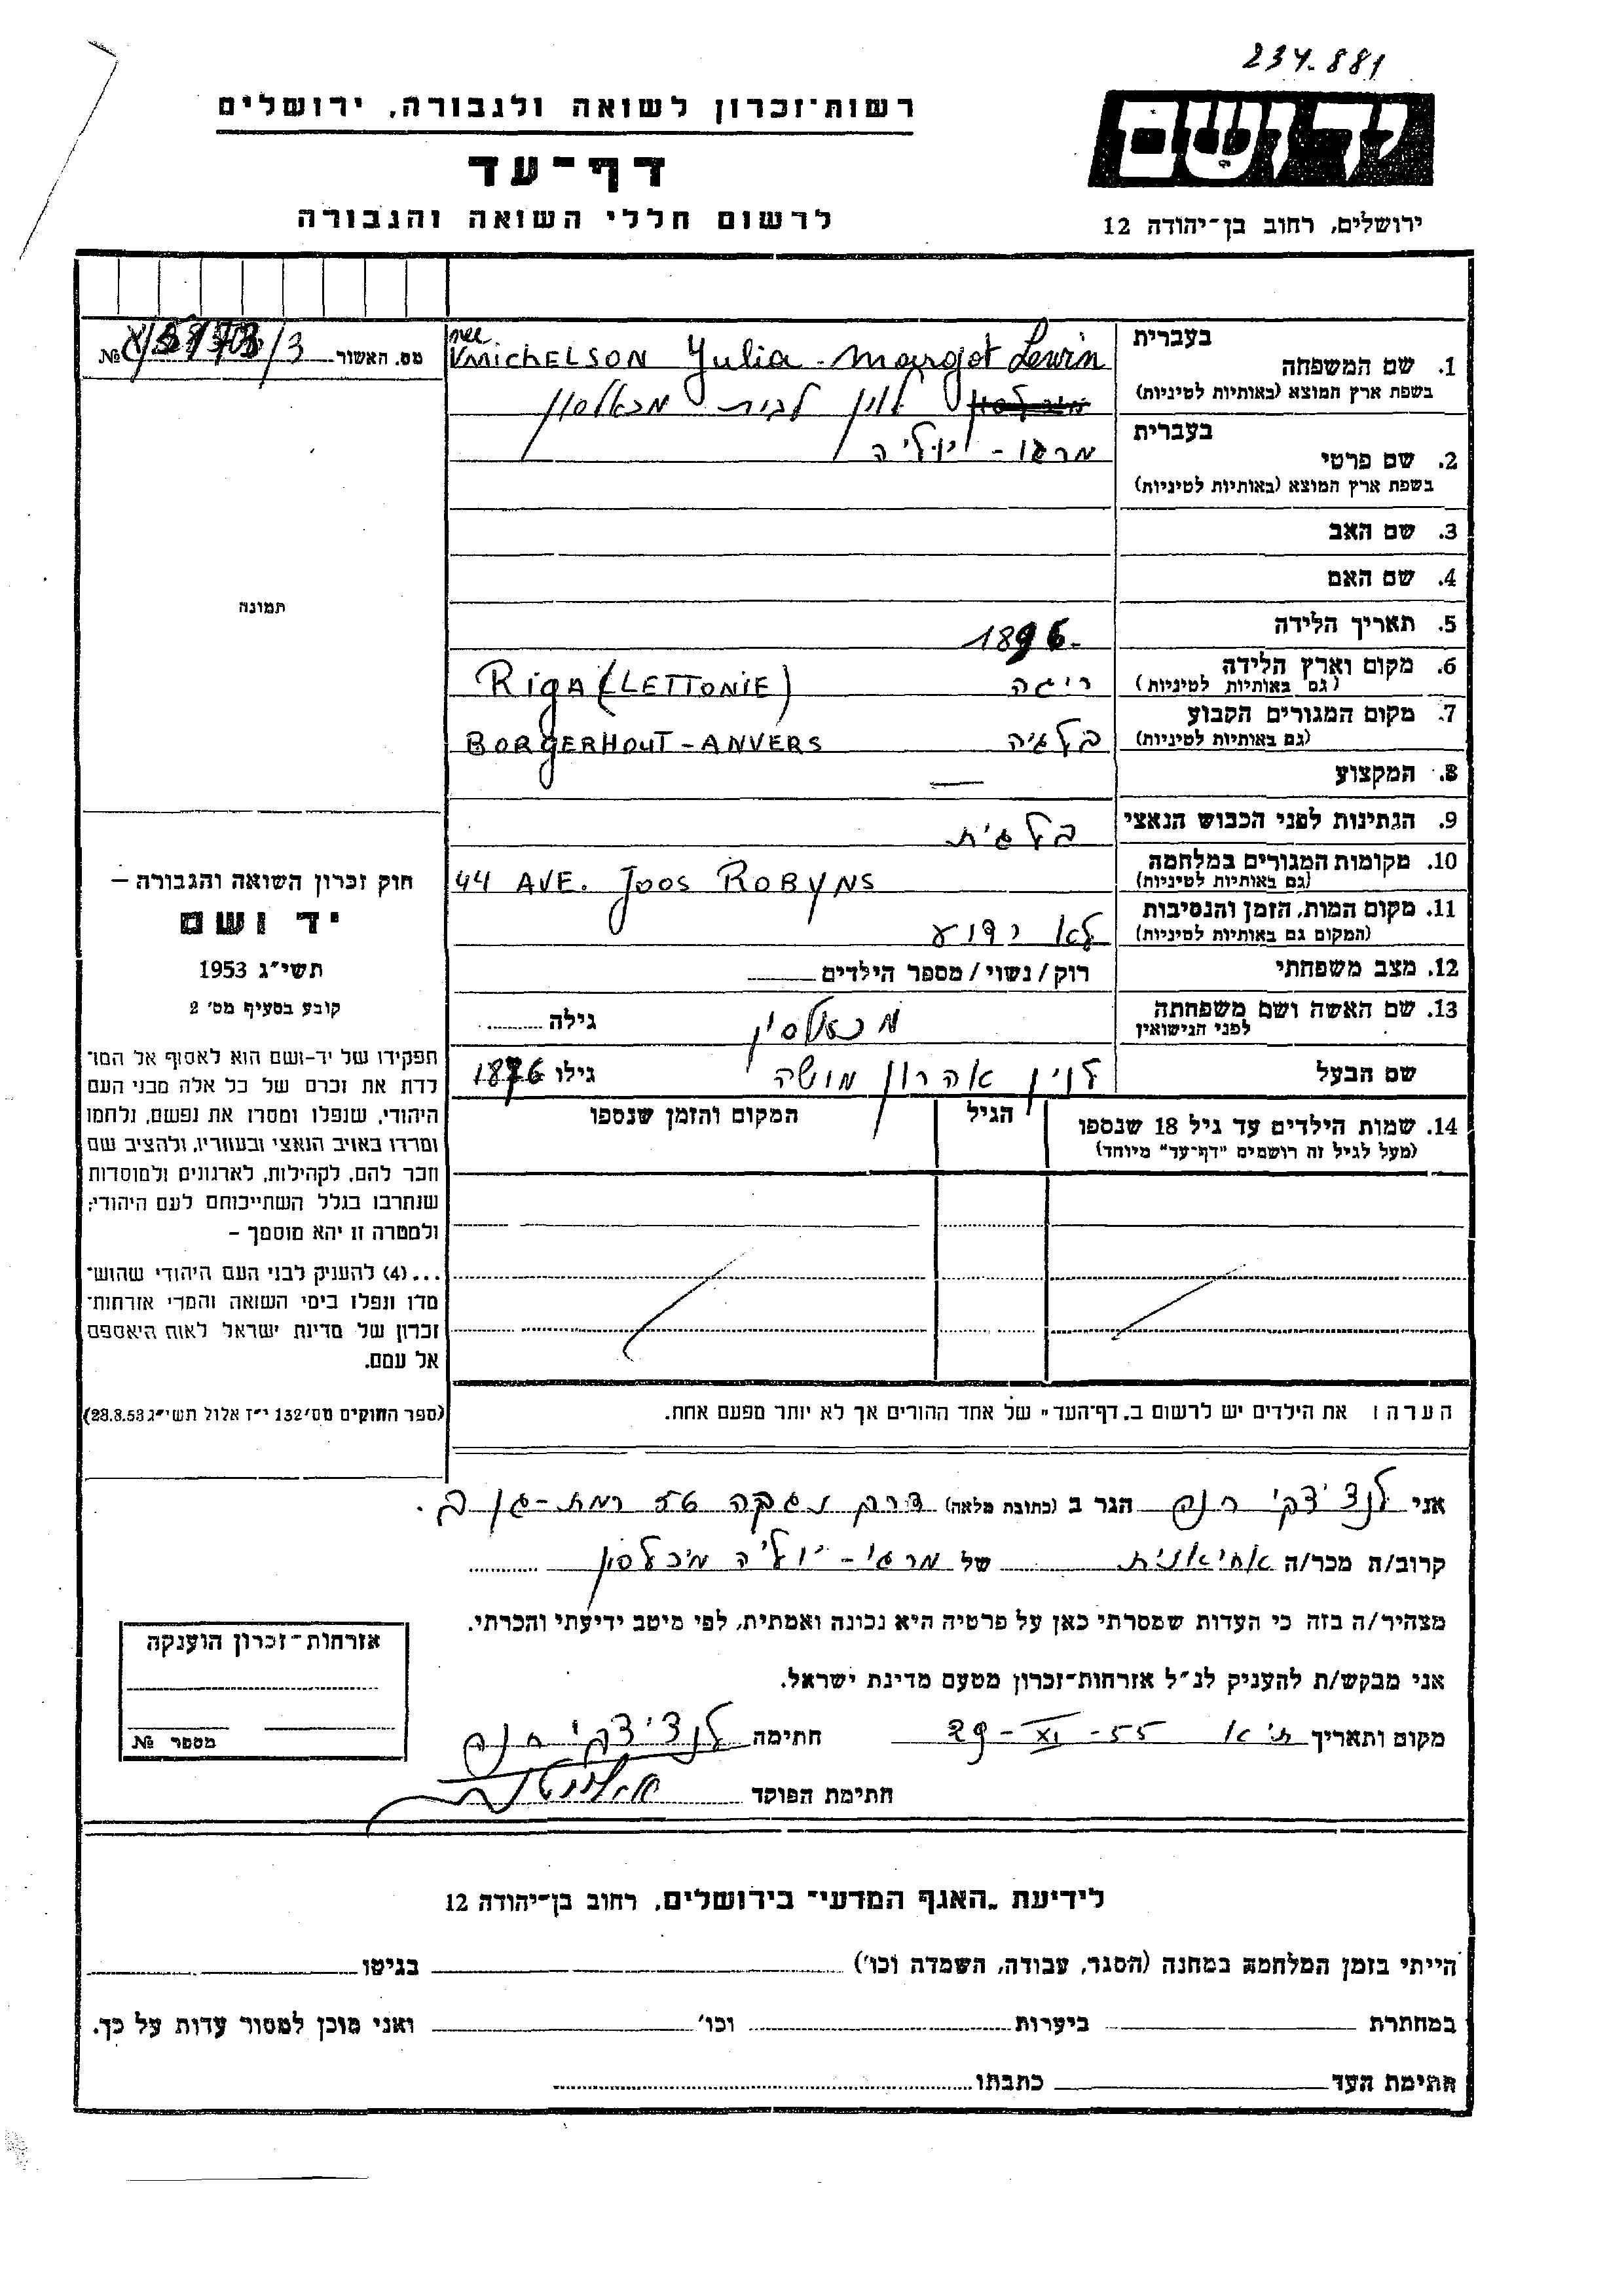 234.881
רשות־זכרון לשואה ולגבורה, ירושלים
יד ושם
דף־עד
לרשום חללי השואה והגבורה
ירושלים, רחוב בן־יהודה 12
מס. האשור №
בעברית
1. שם המשפחה
בשפת ארץ המוצא (באותיות לטיניות)
nee MICHELSON Yulia - Margot Lewin
לוין לבית מכאלסון
בעברית
2. שם פרטי
בשפת ארץ המוצא (באותיות לטיניות)
מרגו - יוליה
3. שם האב
4. שם האם
תמונה
5. תאריך הלידה 1896-
6. מקום וארץ הלידה
(גם באותיות לטיניות)
ריגה Riga (LETTONIE)
7. מקום המגורים הקבוע
(גם באותיות לטיניות)
בלגיה BORGERHOUT - ANVERS
8. המקצוע —
9. הנתינות לפני הכבוש הנאצי בלגית
10. מקומות המגורים במלחמה
(גם באותיות לטיניות)
44 AVE. JOOS ROBYNS
11. מקום המות, הזמן והנסיבות
(המקום גם באותיות לטיניות)
לא ידוע
12. מצב משפחתי רוק/נשוי/מספר הילדים
13. שם האשה ושם משפחתה
לפני הנישואין
מכאלסון גילה
שם הבעל לוין אהרון מושה גילו 1876
14. שמות הילדים עד גיל 18 שנספו
(מעל לגיל זה רושמים "דף־עד" מיוחד)
הגיל
המקום והזמן שנספו
חוק זכרון השואה והגבורה –
יד ושם
תשי"ג 1953
קובע בסעיף מס' 2
תפקידו של יד-ושם הוא לאסוף אל המו־
לדת את זכרם של כל אלה מבני העם
היהודי, שנפלו ומסרו את נפשם, נלחמו
ומרדו באויב הנאצי ובעוזריו, ולהציב שם
וזכר להם, לקהילות, לארגונים ולמוסדות
שנחרבו בגלל השתייכותם לעם היהודי;
ולמטרה זו יהא מוסמך –
...(4) להעניק לבני העם היהודי שהוש־
מדו ונפלו בימי השואה והמרי אזרחות־
זכרון של מדינת ישראל לאות היאספם
אל עמם.
(ספר החוקים מס' 132 י"ז אלול תשי"ג 28.8.53)
הערה: את הילדים יש לרשום ב„דף־העד" של אחד ההורים אך לא יותר מפעם אחת.
אני לנצ'יצקי חנה הגר ב (כתובת מלאה) דרך נגבה רמת-גן
קרוב/ה מכר/ה אחיאנית של מרגו - יוליה מיכלסון
מצהיר/ה בזה כי העדות שמסרתי כאן על פרטיה היא נכונה ואמתית, לפי מיטב ידיעתי והכרתי.
אני מבקש/ת להעניק לנ"ל אזרחות־זכרון מטעם מדינת ישראל.
מקום ותאריך ת"א 29-XI-55 חתימה לנצ'יצקי חנה
חתימת הפוקד
אזרחות־זכרון הוענקה
מספר №
לידיעת „האגף המדעי" בירושלים, רחוב בן־יהודה 12
הייתי בזמן המלחמה במחנה (הסגר, עבודה, השמדה וכו') בגיטו
במחתרת ביערות וכו' ואני מוכן למסור עדות על כך.
חתימת העד כתבתו